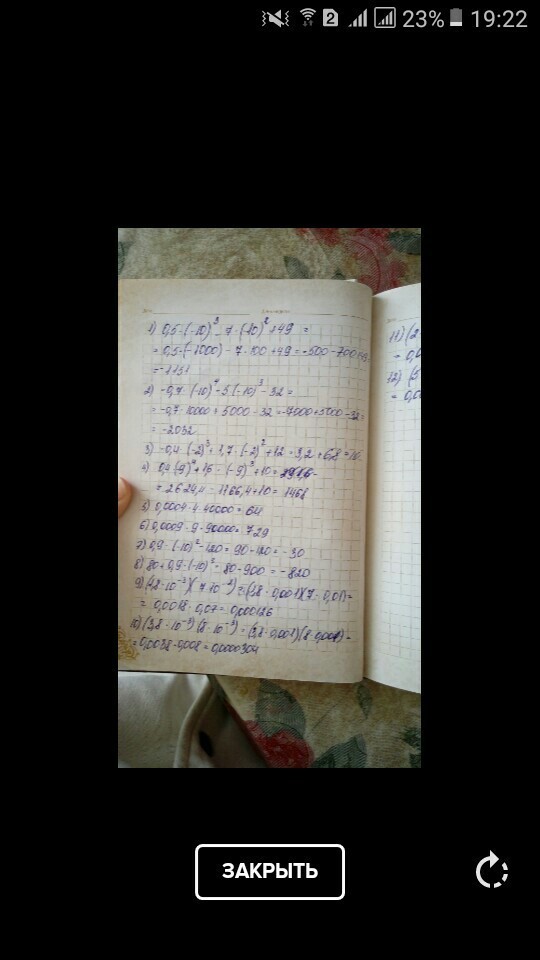 23% 19:22
1) 0,5·(-10)³ - 7·(-10)² + 49 =
= 0,5·(-1000) - 7·100 + 49 = -500 - 700 + 49
= -1151
2) -0,7·(-10)⁴ - 5·(-10)³ - 32 =
= -0,7·10000 + 5000 - 32 = -7000 + 5000 - 32 =
= -2032
3) -0,4·(-2)³ + 1,7·(-2)² + 12 = 3,2 + 6,8 =
= 2624,4 - 1166,4 + 10 = 1468
5) 0,0004·4·40000 = 64
6) 0,0009·9·90000 = 729
7) 0,9·(-10)² - 120 = 90 - 120 = -30
8) 80 + 0,9·(-10)³ = 80 - 900 = -820
9) (1,8·10⁻³)(7·10⁻²) = (1,8·0,001)(7·0,01) =
= 0,0018·0,07 = 0,000126
10) (3,8·10⁻³)(8·10⁻³) = (3,8·0,001)(8·0,001) =
= 0,0038·0,008 = 0,0000304
11) (2
= 0,0
12) (5
= 0,00
ЗАКРЫТЬ